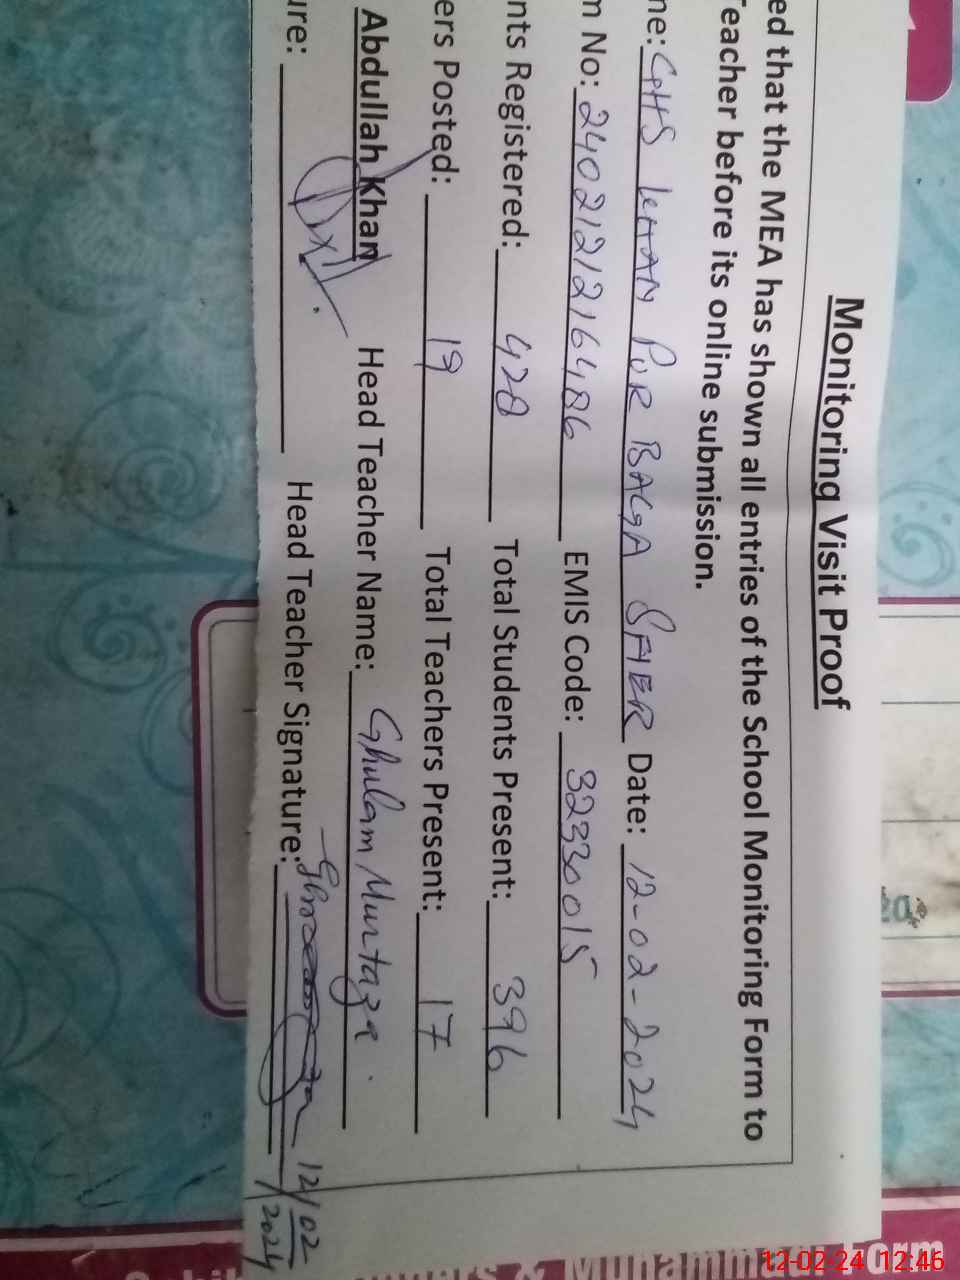 Monitoring Visit Proof
ed that the MEA has shown all entries of the School Monitoring Form to
Teacher before its online submission.
me: GHS KHAN PUR BAGGA SHER Date: 12-02-2024
m No: 2402121216486 EMIS Code: 32330015
nts Registered: 428 Total Students Present: 396
ers Posted: 19 Total Teachers Present: 17
Abdullah Khan Head Teacher Name: Ghulam Murtaza.
ure: Head Teacher Signature: 12/02/2024
& Muhammad Form
12-02-24 12:46